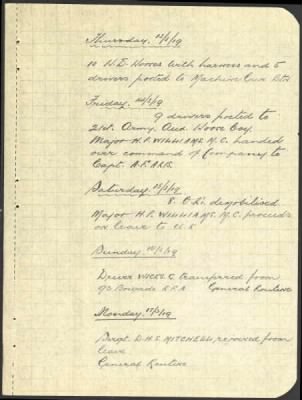 Thursday
10 H.D. Horses with harness and 5
drivers posted to Machine Gun Btn
Friday
9 drivers posted to
21st Army Aux. Horse Coy.
Major H.P. WILLIAMS. M.C. handed
over command of Company to
Capt.
Saturday
8. O.Rs. demobilised
Major H.P. WILLIAMS. M.C. proceeds
on leave to U.K
Sunday
Driver transferred from
93 Bowards R.F.A General Routine
Monday
Sergt. D.H.S. MITCHELL rejoined from
leave
General Routine